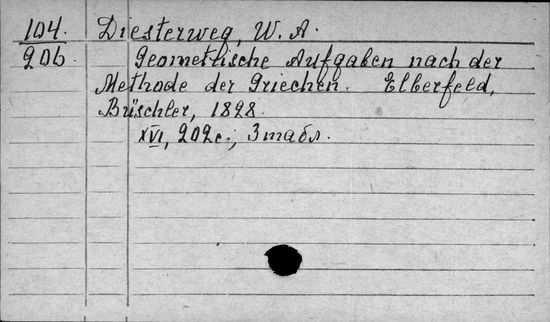 104. Diesterweg, W. A.
206 Geometrische Aufgaben nach der
Methode der Griechen. Elberfeld,
Büschler, 1828.
XVI, 202 с., 3 табл.